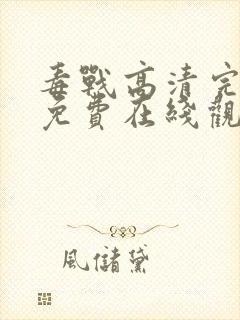 毒戰高清完
免費在綫觀
風儲黛